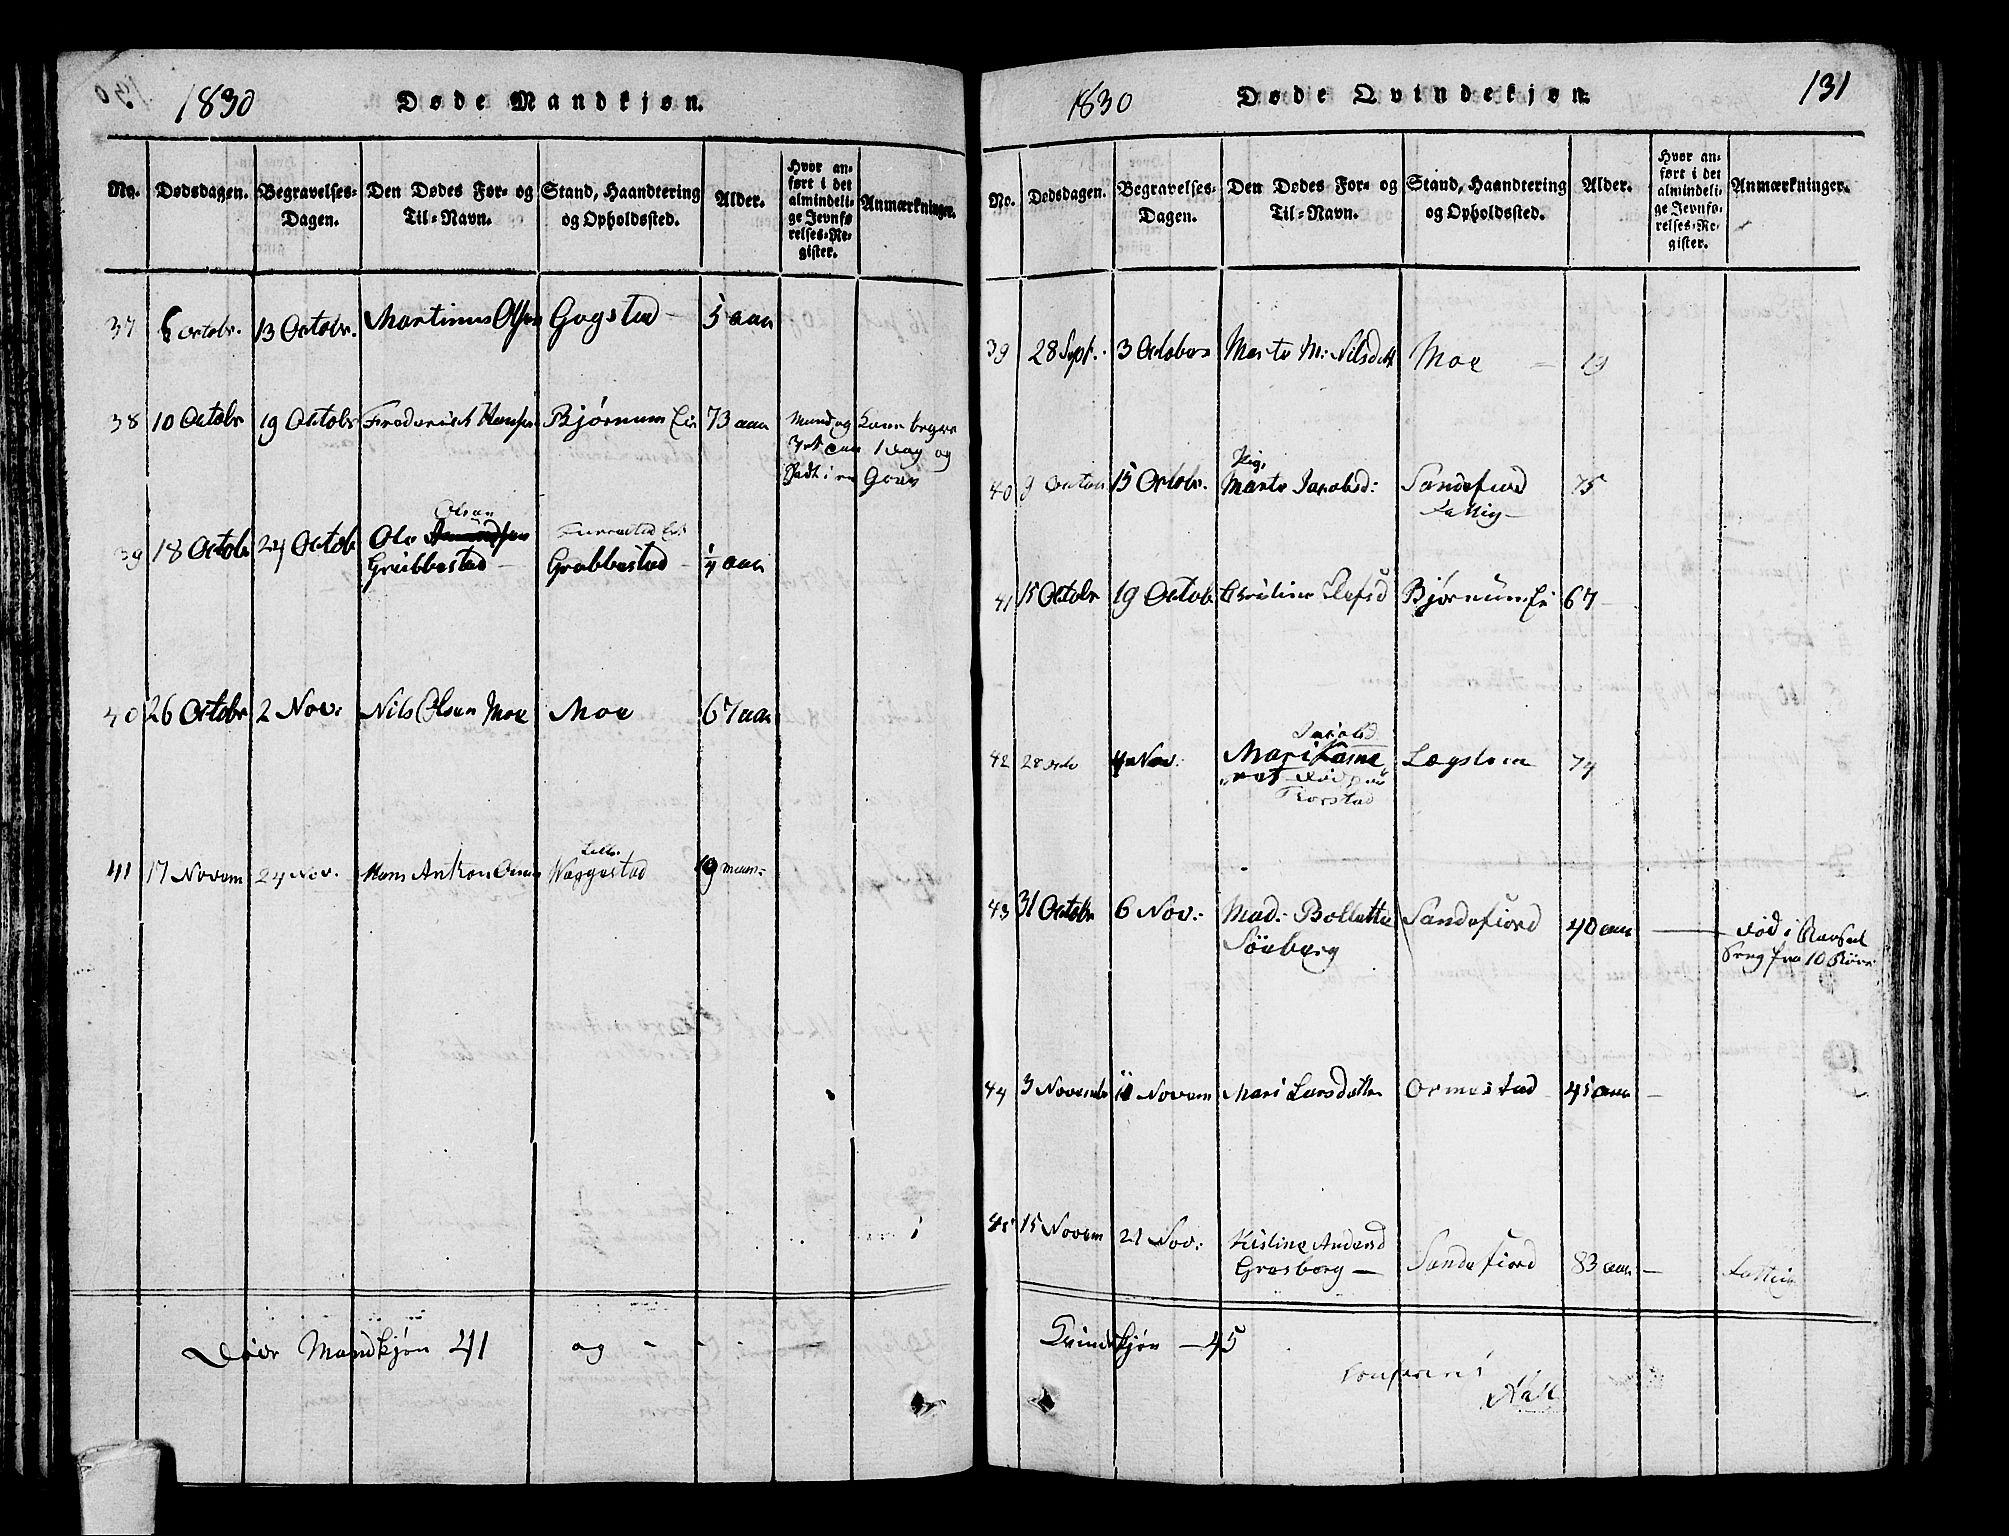 1830 Døde Mandkjøn.
No. Dødsdagen. Begravelses-Dagen. Den Dødes For- og Til-Navn. Stand, Haandtering og Opholdssted. Alder. Hvor anført i det almindelige Jevnførelses-Register. Anmærkninger.
37 6 Octobr. 13 Octobr. Martinus Olsen Gogstad 5 aar
38 10 Octobr 19 Octobr Frederich Hansen Bjørnum Ei 73 aar Mand og Kone begra
vet een Dag og
i en Grav
Olsen
39 18 Octob 24 Octob Ole ¼ aar
Gribbestad Grabbestad
40 26 Octobr 2 Nov: Nils Olsen Moe Moe 67 aar
Lille
41 17 Novem 24 Nov. Hans Anthon Olsen Waggestad 19
Døde Mandkjøn 41 og - - -
1830 Døde Qvindekjøn. 131
No. Dødsdagen. Begravelses-Dagen. Den Dødes For- og Til-Navn. Stand, Haandtering og Opholdssted. Alder. Hvor anført i det almindelige Jevnførelses-Register. Anmærkninger.
39 28 Sept. 3 Octobers Marte M: Nilsdatt Moe 19
Pig.
40 9 Octob 15 Octobr. Marte Jacobsd: Sandefiord 75
Fattig
41 15 Octobr 19 Octob Christine Olefsd Bjørnum Ei 67
Jacobsd
42 28 4 Nov: Mari Lægstom 74
død paa
Thorstad
43 31 Octobr 6 Nov: Mad: Bollette Sandefiord 40 aar død i Barsel
Søeberg Seng fra 10 Børn
44 3 Novembr 11 Novem Mari Larsdatter Ormestad 45 aar
45 15 Novem 21 Nov: Kistine Andersd
Grasborg Sandefiord 83 aar Fattig
Qvindekjøn 45